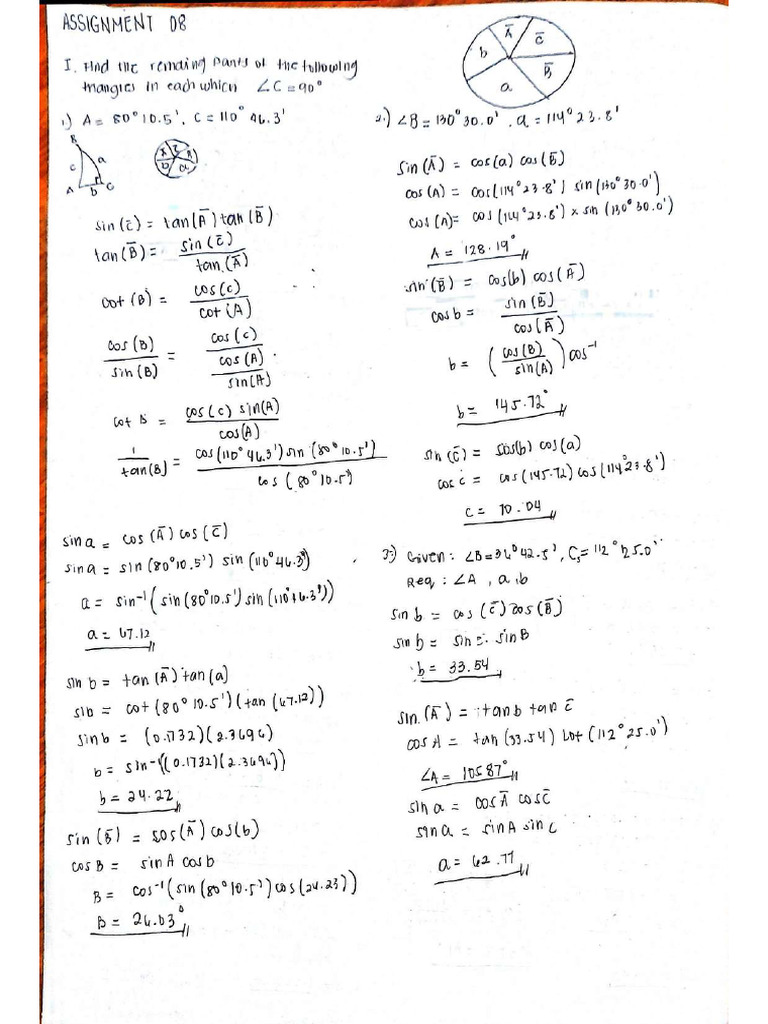 ASSIGNMENT 08
I. Find the remaining parts of the following
triangles in each which ∠C = 90°
1.) A = 80° 10.5', C = 110° 46.3'
B
c a
A b C
sin (c̄) = tan(Ā) tan (B̄)
tan (B̄) = sin (c̄) / tan (Ā)
cot (B) = cos(c) / cot (A)
cos (B) / sin (B) = cos (c) / cos (A) / sin (A)
cot B = cos (c) sin(A) / cos(A)
1 / tan(B) = cos(110° 46.3') sin (80° 10.5') / cos (80° 10.5')
sin a = cos (Ā) cos (c̄)
sin a = sin (80° 10.5') sin (110° 46.3')
a = sin⁻¹ (sin (80° 10.5') sin (110° 46.3'))
a = 67.12
sin b = tan (Ā) tan (a)
sib = cot (80° 10.5') (tan (67.12))
sin b = (0.1732) (2.3696)
b = sin⁻¹ ((0.1732) (2.3696))
b = 24.22
sin (B̄) = cos (Ā) cos (b)
cos B = sin A cos b
B = cos⁻¹ (sin (80° 10.5') cos (24.23))
B = 26.03°
Ā
c̄
b
B̄
a
2.) ∠B = 130° 30.0', a = 114° 23.8'
sin (Ā) = cos(a) cos (B̄)
cos (A) = cos (114° 23.8') sin (130° 30.0')
cos (A) = cos (114° 23.8') x sin (130° 30.0')
A = 128.19°
sin (B̄) = cos(b) cos (Ā)
cos b = sin (B̄) / cos (Ā)
b = (cos (B) / sin (A)) cos⁻¹
b = 145.72°
sin (c̄) = cos(b) cos (a)
cos c = cos (145.72) cos (114° 23.8')
c = 70.04
3.) Given: ∠B = 36° 42.5', C = 112° 25.0'
Req : ∠A, a, b
sin b = cos (c̄) cos (B̄)
sin b = sin c · sin B
b = 33.54
sin (Ā) = tan b tan c̄
cos A = tan (33.54) cot (112° 25.0')
∠A = 105.87°
sin a = cos Ā cos c̄
sin a = sin A sin c
a = 62.77